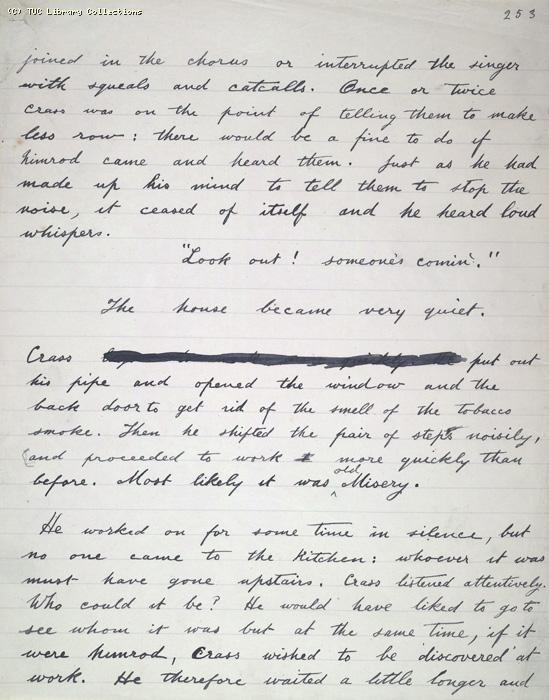 (C) TUC Library Collections
253
joined in the chorus or interrupted the singer
with squeals and catcalls. Once or twice
Crass was on the point of telling them to make
less row: there would be a fine to do if
Nimrod came and heard them. Just as he had
made up his mind to tell them to stop the
noise, it ceased of itself and he heard loud
whispers.
"Look out! someone's comin'."
The house became very quiet.
Crass put out
his pipe and opened the window and the
back door to get rid of the smell of the tobacco
smoke. Then he shifted the pair of steps noisily,
and proceeded to work more quickly than
before. Most likely it was old Misery.
He worked on for some time in silence, but
no one came to the kitchen: whoever it was
must have gone upstairs. Crass listened attentively.
Who could it be? He would have liked to go to
see whom it was but at the same time, if it
were Nimrod, Crass wished to be discovered at
work. He therefore waited a little longer and